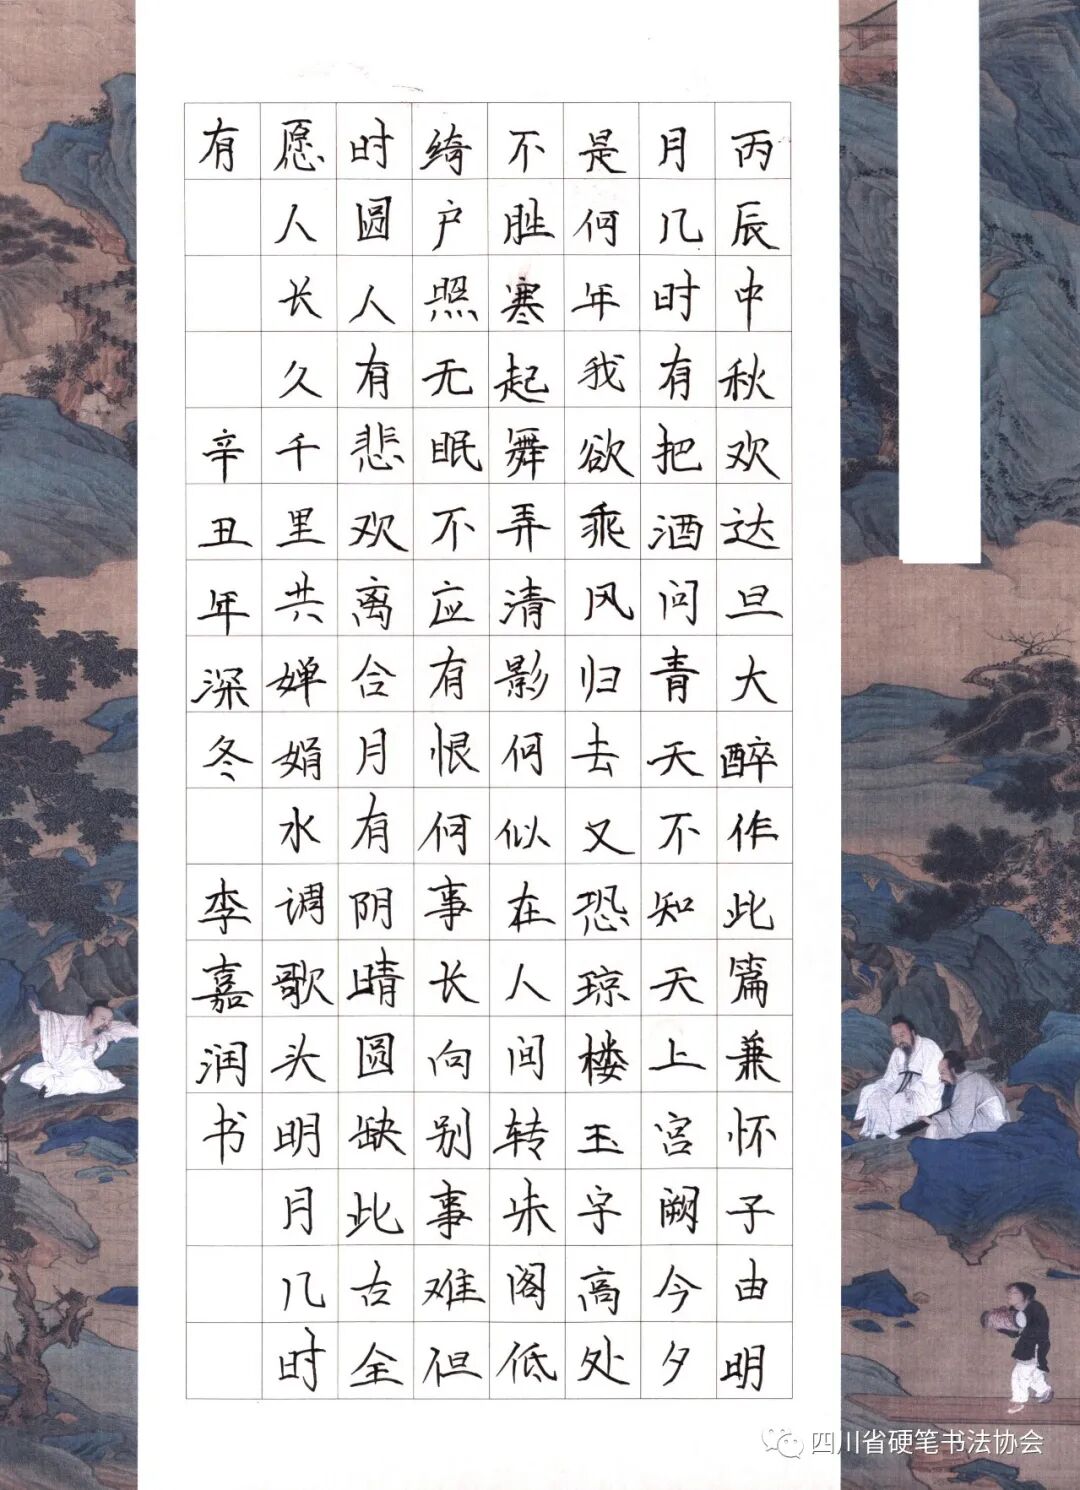 丙辰中秋欢达旦大醉作此篇兼怀子由明
月几时有把酒问青天不知天上宫阙今夕
是何年我欲乘风归去又恐琼楼玉宇高处
不胜寒起舞弄清影何似在人间转朱阁低
绮户照无眠不应有恨何事长向别事难但
时圆人有悲欢离合月有阴晴圆缺此古全
愿人长久千里共婵娟水调歌头明月几时
有 辛丑年深冬 李嘉润书
四川省硬笔书法协会